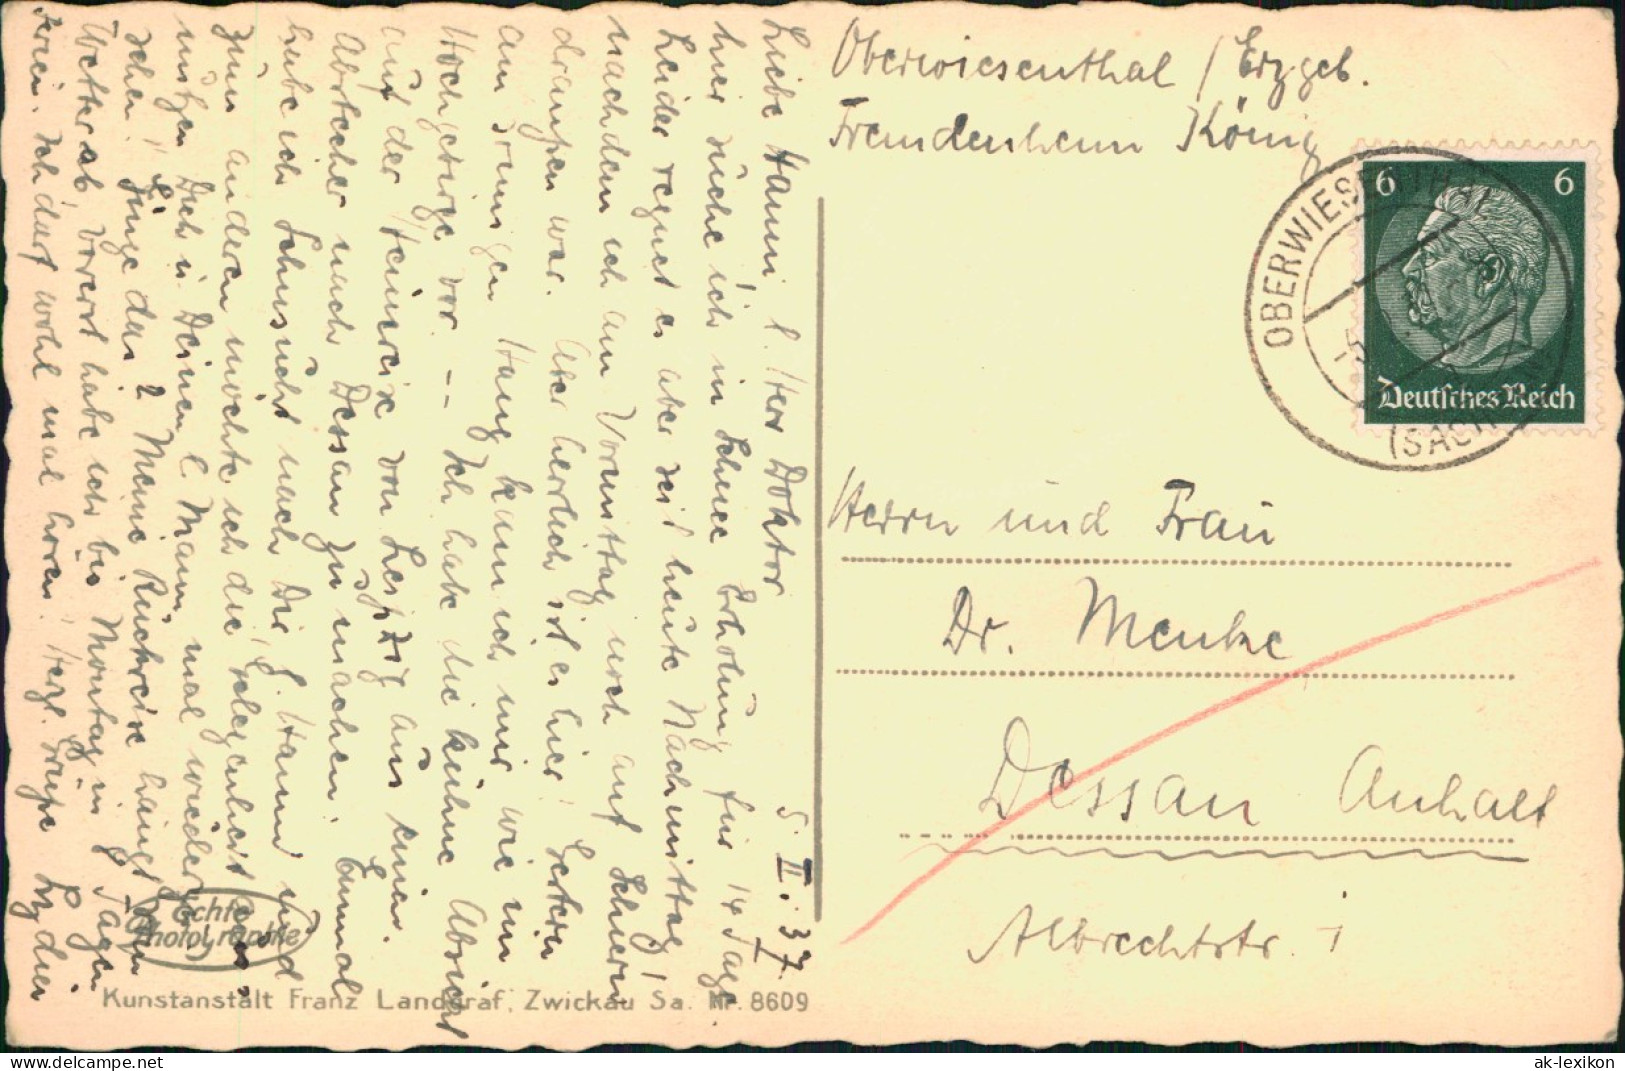 Oberwiesenthal / Erzgeb.
Fremdenheim König
OBERWIESENTHAL
(SACHSEN)
6 6
Deutsches Reich
Herrn und Frau
Dr. Menke
Dessau Anhalt
Albrechtstr. 1
5. II. 37.
Liebe Hanni, l. Herr Doktor
hier suche ich im Schnee Erholung für 14 Tage
Leider regnet es aber seit heute Nachmittag!
nachdem ich am Vormittag noch auf Schiern
draußen war. Aber herrlich ist es hier! Gestern
am sonnigen Hang kam ich mir wie im
Hochgebirge vor. — Ich habe die kühne Absicht
auf der Heimreise von Leipzig aus einen
Abstecher nach Dessau zu machen. Einmal
habe ich Sehnsucht nach Dir, l. Hanni und
zum anderen möchte ich die Gelegenheit
nutzen Dich u. Deinen l. Mann mal wieder
sehen!
Meine Rückreise hängt
Wetter ab, vorerst habe ich bis Montag in 8 Tagen
Ferien. Ich darf wohl mal hören! Herzl. Grüße
Echte
Photographie
Kunstanstalt Franz Landgraf, Zwickau Sa. Nr. 8609
Delcampe.net
ak-lexikon